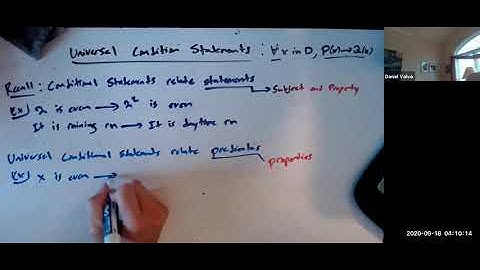 Universal Condition Statements : ∀ x in D, P(x) → Q(x)
Recall: Conditional Statements relate statements
→ Subject and Property
(Ex) 2 is even → 2² is even
It is raining rn → It is daytime rn
Universal Conditional statements relate predicates
properties
(Ex) x is even →
Daniel Valvo
2020-09-18 04:10:14